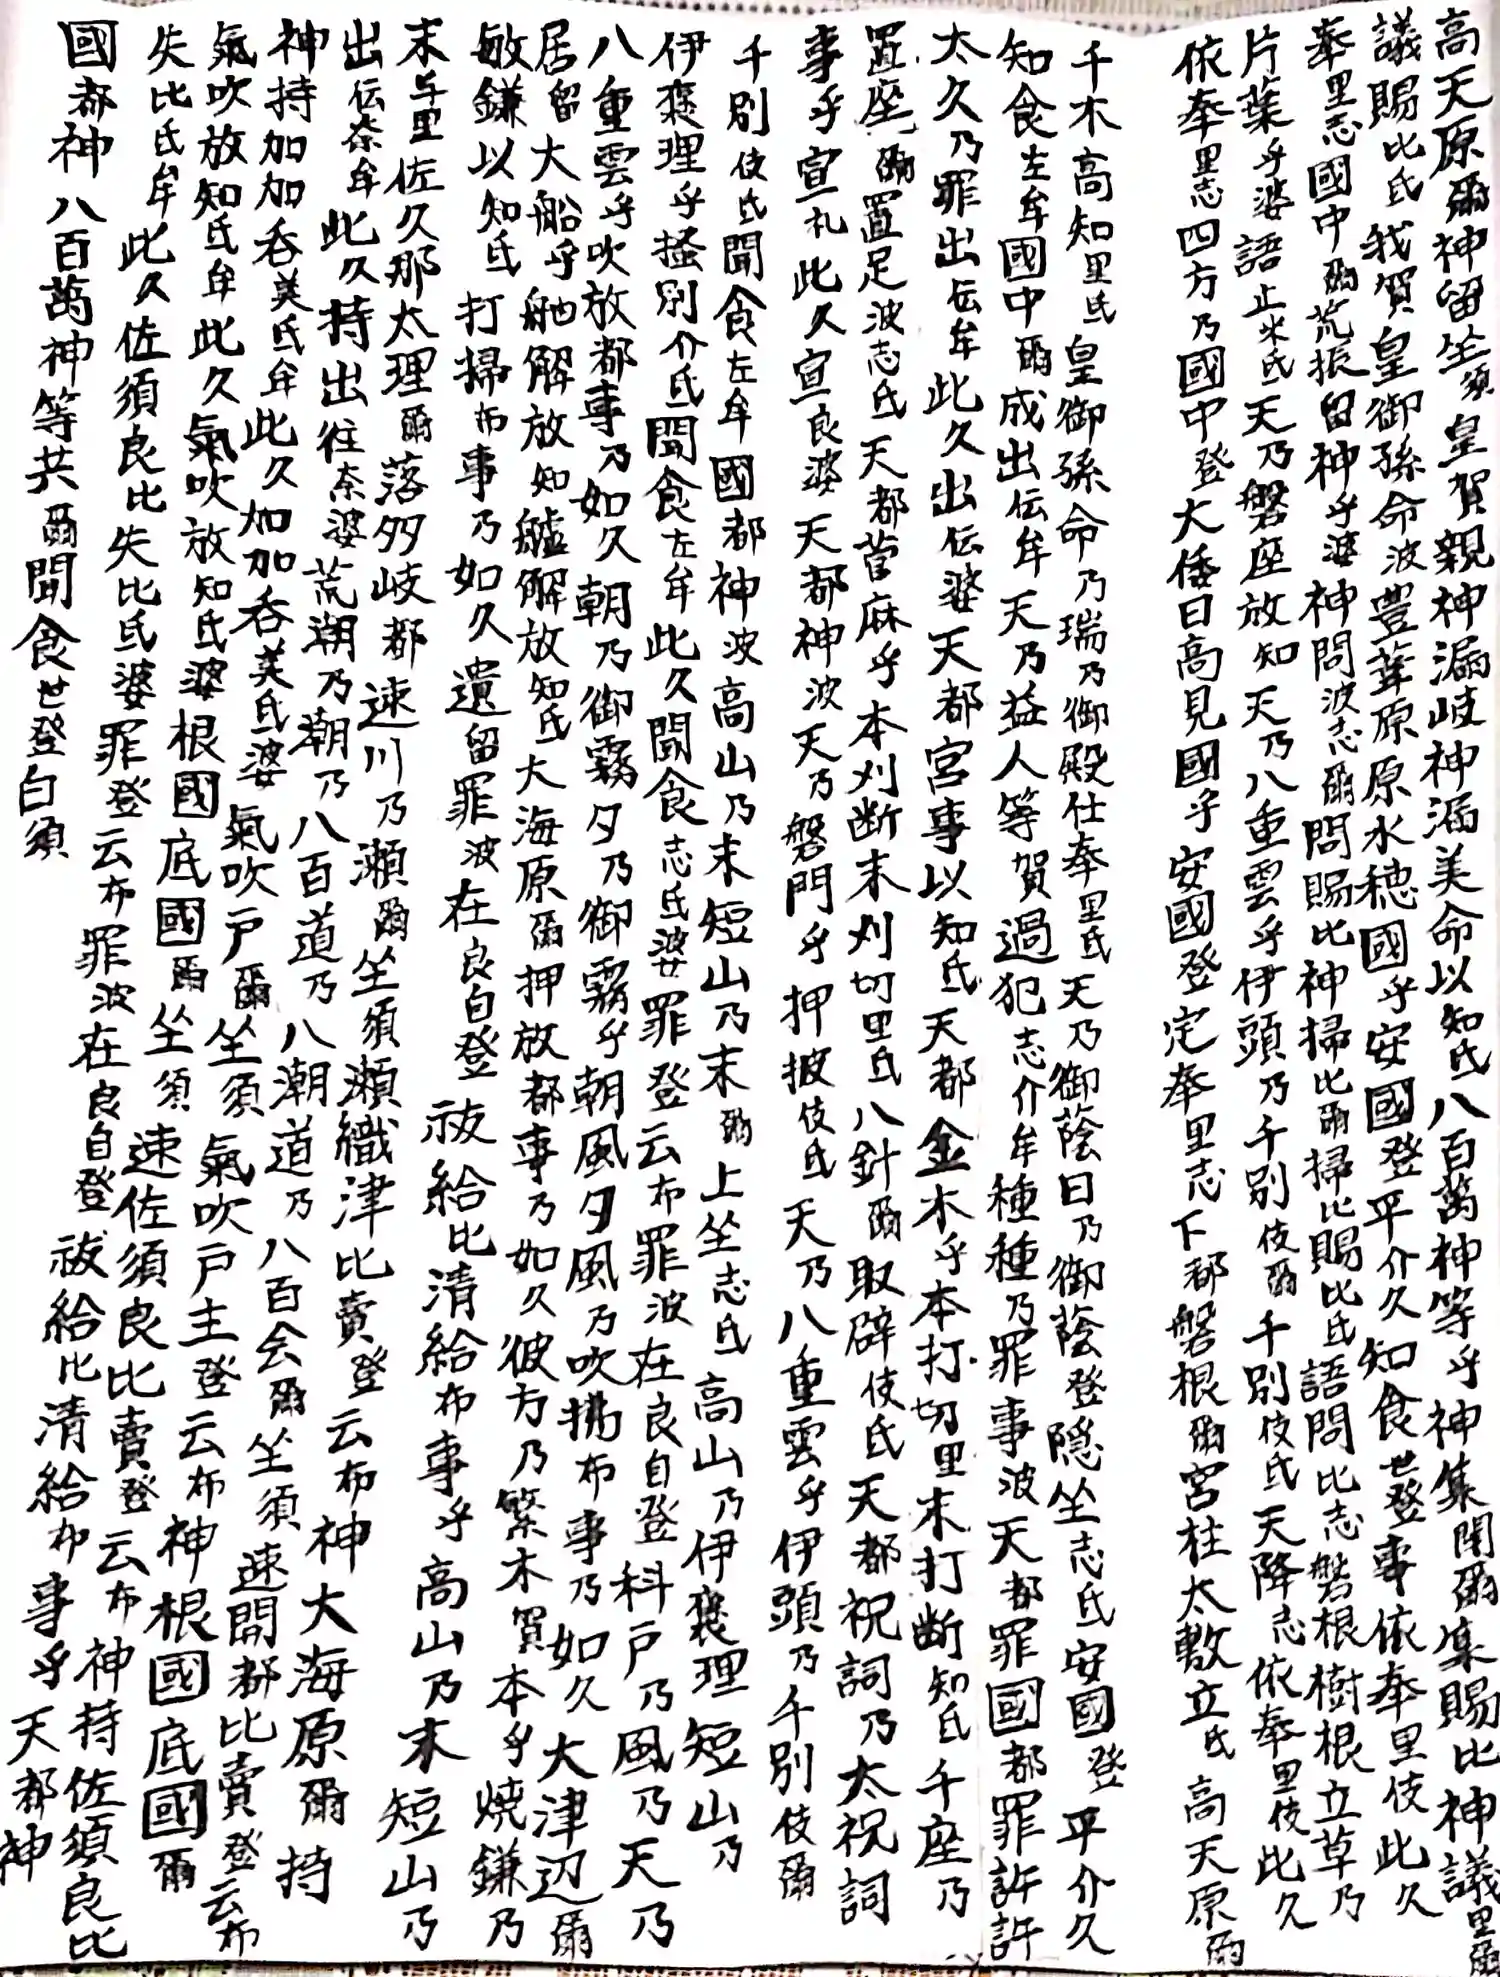 高天原爾神留坐須皇賀親神漏岐神漏美命以知氐八百萬神等乎神集閇爾集賜比神議里爾
議賜比氐我賀皇御孫命波豊葦原水穂國乎安國登平介久知食世登事依奉里伎此久
奉里志國中爾荒振留神乎婆神問波志爾問賜比神掃比爾掃比賜比氐語問比志磐根樹根立草乃
片葉乎婆語止米氐天乃磐座放知天乃八重雲乎伊頭乃千別伎爾千別伎氐天降志依奉里伎此久
依奉里志四方乃國中登大倭日高見國乎安國登定奉里志下都磐根爾宮柱太敷立氐高天原爾
千木高知里氐皇御孫命乃瑞乃御殿仕奉里氐天乃御蔭日乃御蔭登隠坐志氐安國登平介久
知食左牟國中爾成出伝牟天乃益人等賀過犯志介牟種種乃罪事波天都罪國都罪許許
太久乃罪出伝牟此久出伝婆天都宮事以知氐天都金木乎本打切里末打断知氐千座乃
置座爾置足波志氐天都菅麻乎本刈断末刈切里氐八針爾取辟伎氐天都祝詞乃太祝詞
事乎宣礼此久宣良婆天都神波天乃磐門乎押披伎氐天乃八重雲乎伊頭乃千別伎爾
千別伎氐聞食左牟國都神波高山乃末短山乃末爾上坐志氐高山乃伊褒理短山乃
伊褒理乎掻別介氐聞食左牟此久聞食志氐婆罪登云布罪波在良自登科戸乃風乃天乃
八重雲乎吹放都事乃如久朝乃御霧夕乃御霧乎朝風夕風乃吹拂布事乃如久大津辺爾
居留大船乎舳解放知艫解放知氐大海原爾押放都事乃如久彼方乃繁木賀本乎焼鎌乃
敏鎌以知氐打掃布事乃如久遺留罪波在良自登祓給比清給布事乎高山乃末短山乃
末与里佐久那太理爾落多岐都速川乃瀬爾坐須瀬織津比賣登云布神大海原爾持
出伝奈牟此久持出往奈婆荒潮乃潮乃八百道乃八潮道乃八百会爾坐須速開都比賣登云布
神持加加呑美氐牟此久加加呑美氐婆氣吹戸爾坐須氣吹戸主登云布神根國底國爾
氣吹放知氐牟此久氣吹放知氐婆根國底國爾坐須速佐須良比賣登云布神持佐須良比
失比氐牟此久佐須良比失比氐婆罪登云布罪波在良自登祓給比清給布事乎天都神
國都神八百萬神等共爾聞食世登白須